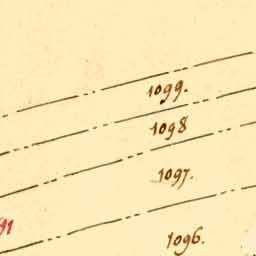 1099.
1098
1097.
91
1096.